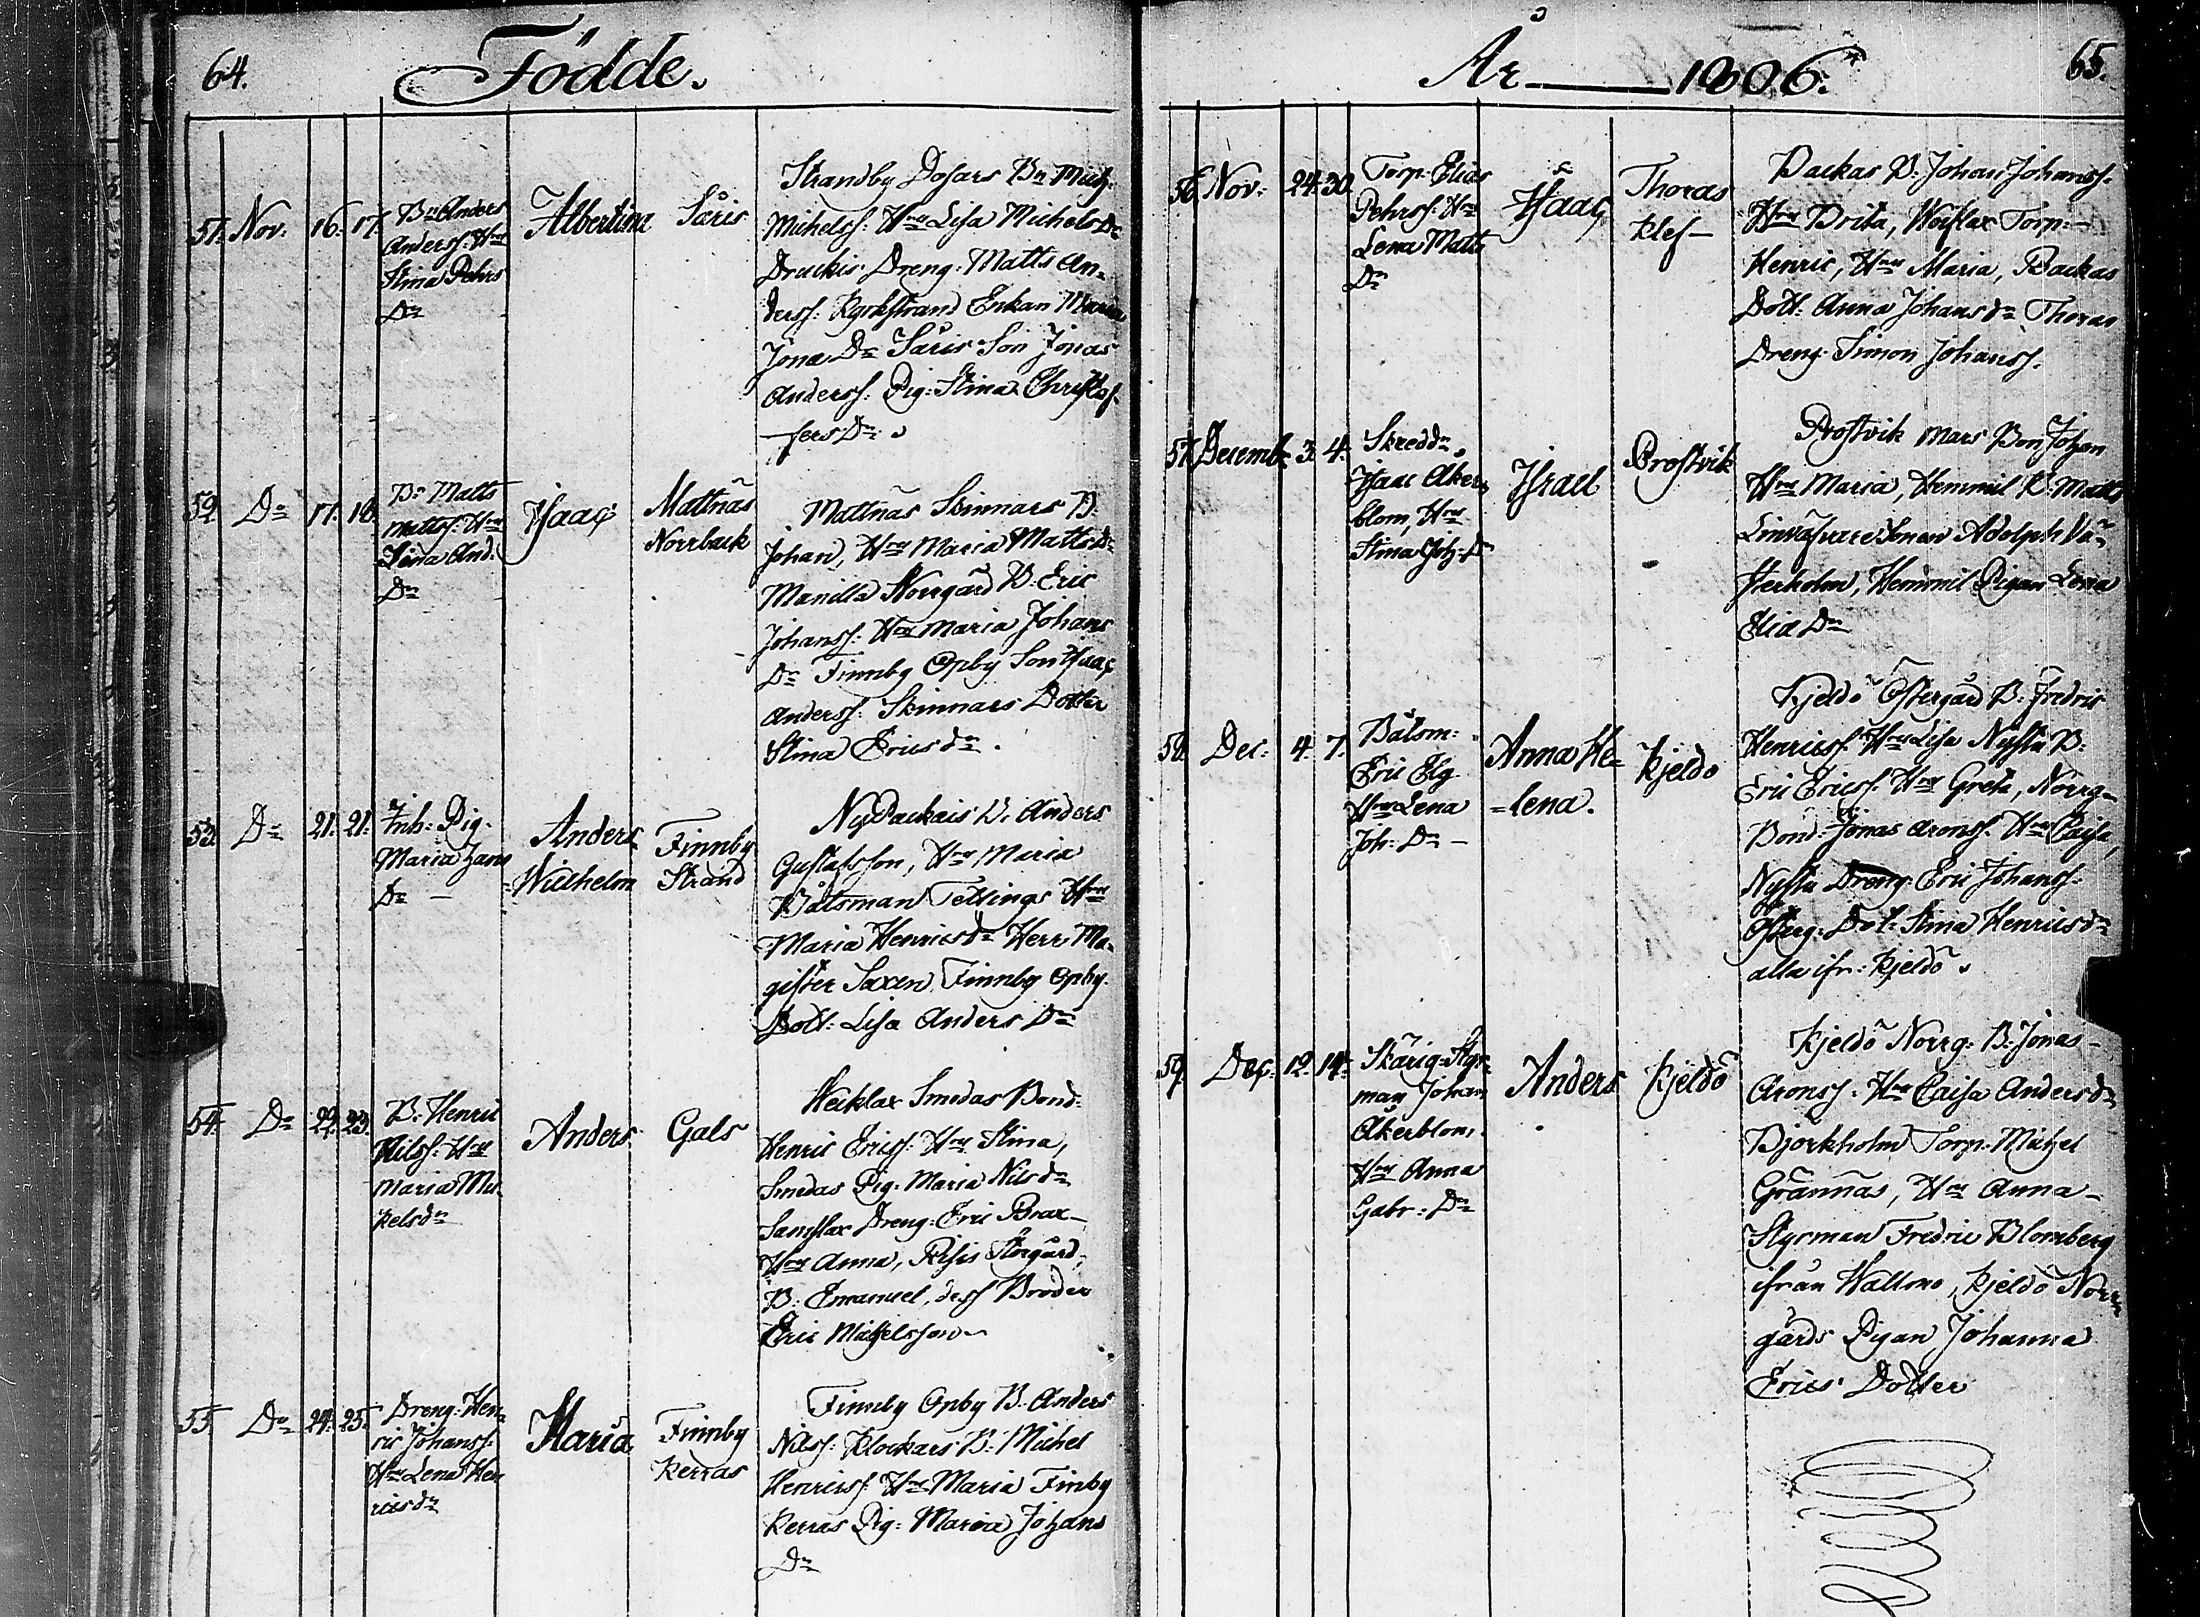 64. Födde.
51. Nov: 16. 17. Bn Anders Anderss: Hru Stina Pehrs Dr Albertina Säris
Strandby Dosars Bn Mich:
Michelss: Hru Lisa Michels Dr
Druckis Dreng: Matts An=
derss: Kyrkstrand Enkan Maria
Jona Dr Säris Son Jonas
Anderss: Pig: Stina Christof=
fers Dr
52. Do 17. 18. Bn Matts Mattss: Hru Lena And: Dr Isaac Mattnäs Norrback
Mattnäs Skinnars B.
Johan, Hru Maria Matts Dr
Manilla Norrgård B: Eric
Johanss: Hru Maria Johans
Dr Finnby Opby Son Isaac
Anderss: Skinnars Dotter
Stina Erics dr.
53. Do 21. 21. Inh: Pig: Maria Hans Dr Anders Wilhelm Finnby Strand
Ny Packais B. Anders
Gustafsson, Hru Maria
Båtsman Tellings Hru
Maria Henrics dr Herr Ma=
gister Saxen Finnby Opby
Dott: Lisa Anders Dr
54. Do 22. 23. B: Henric Nilss: Hru Maria Mickelsdr Anders Gals
Smedas Bond:
Henric Ericss: Hru Stina,
Smedas Pig: Maria Nils dr
Dreng: Eric Brax
Hru Anna, Risis Storgård,
B: Emanuel, dess Broder
Eric Michelsson
55. Do 24. 25. Dreng: Henric Johanss: Hru Lena Henricsdr Maria Finnby Kerras
Finnby Opby B. Anders
Nilss: Klockars B: Michel
Henricss: Hru Maria Finby
Kerras Pig: Maria Johans
Dr
År 1806. 65.
56. Nov: 24. 30. Torp: Elias Pehrss: Hru Lena Matts Dr Isaac Thoras Klef
Backas B: Johan Johanss:
Hru Brita, Torp:
Henric, Hru Maria, Backas
Dott: Anna Johans dr Thoras
Dreng: Simon Johanss:
57. Decemb: 3. 4. Skreddn Isaac Åkerblom, Hru Stina Joh: Dr Israel Prostvik
Prostvik Mars Bon Johan
Hru Maria, Hemmil B: Matts
Linväfvare Sonen Adolph Wä=
sterholm, Hemmil Pigan Lena
Elia Dr
58. Dec: 4. 7. Båtsm: Eric Elg Hru Lena Joh: Dr Anna He=lena. Kjeldö
Kjeldö Östergård B: Fredric
Henricss: Hru Lisa Nystu B:
Eric Ericss: Hru Greta, Norrg=
Bond: Jonas Aronss: Hru Caisa,
Nystu Dreng Eric Johanss:
Österg: Dot: Stina Henrics dr
alla ifr: Kjeldö
59. Dec: 12. 14. Skärig: Styrman Johan Åkerblom, Hru Anna Gabr: Dr Anders Kjeldö
Kjeldö Norrg: B: Jonas
Aronss: Hru Caisa Anders dr
Björkholm Torp: Michel
Grännäs, Hru Anna
Styrman Fredric Blomberg
ifrån Wallmo, Kjeldö Norr=
gårds Pigan Johanna
Erics Dotter